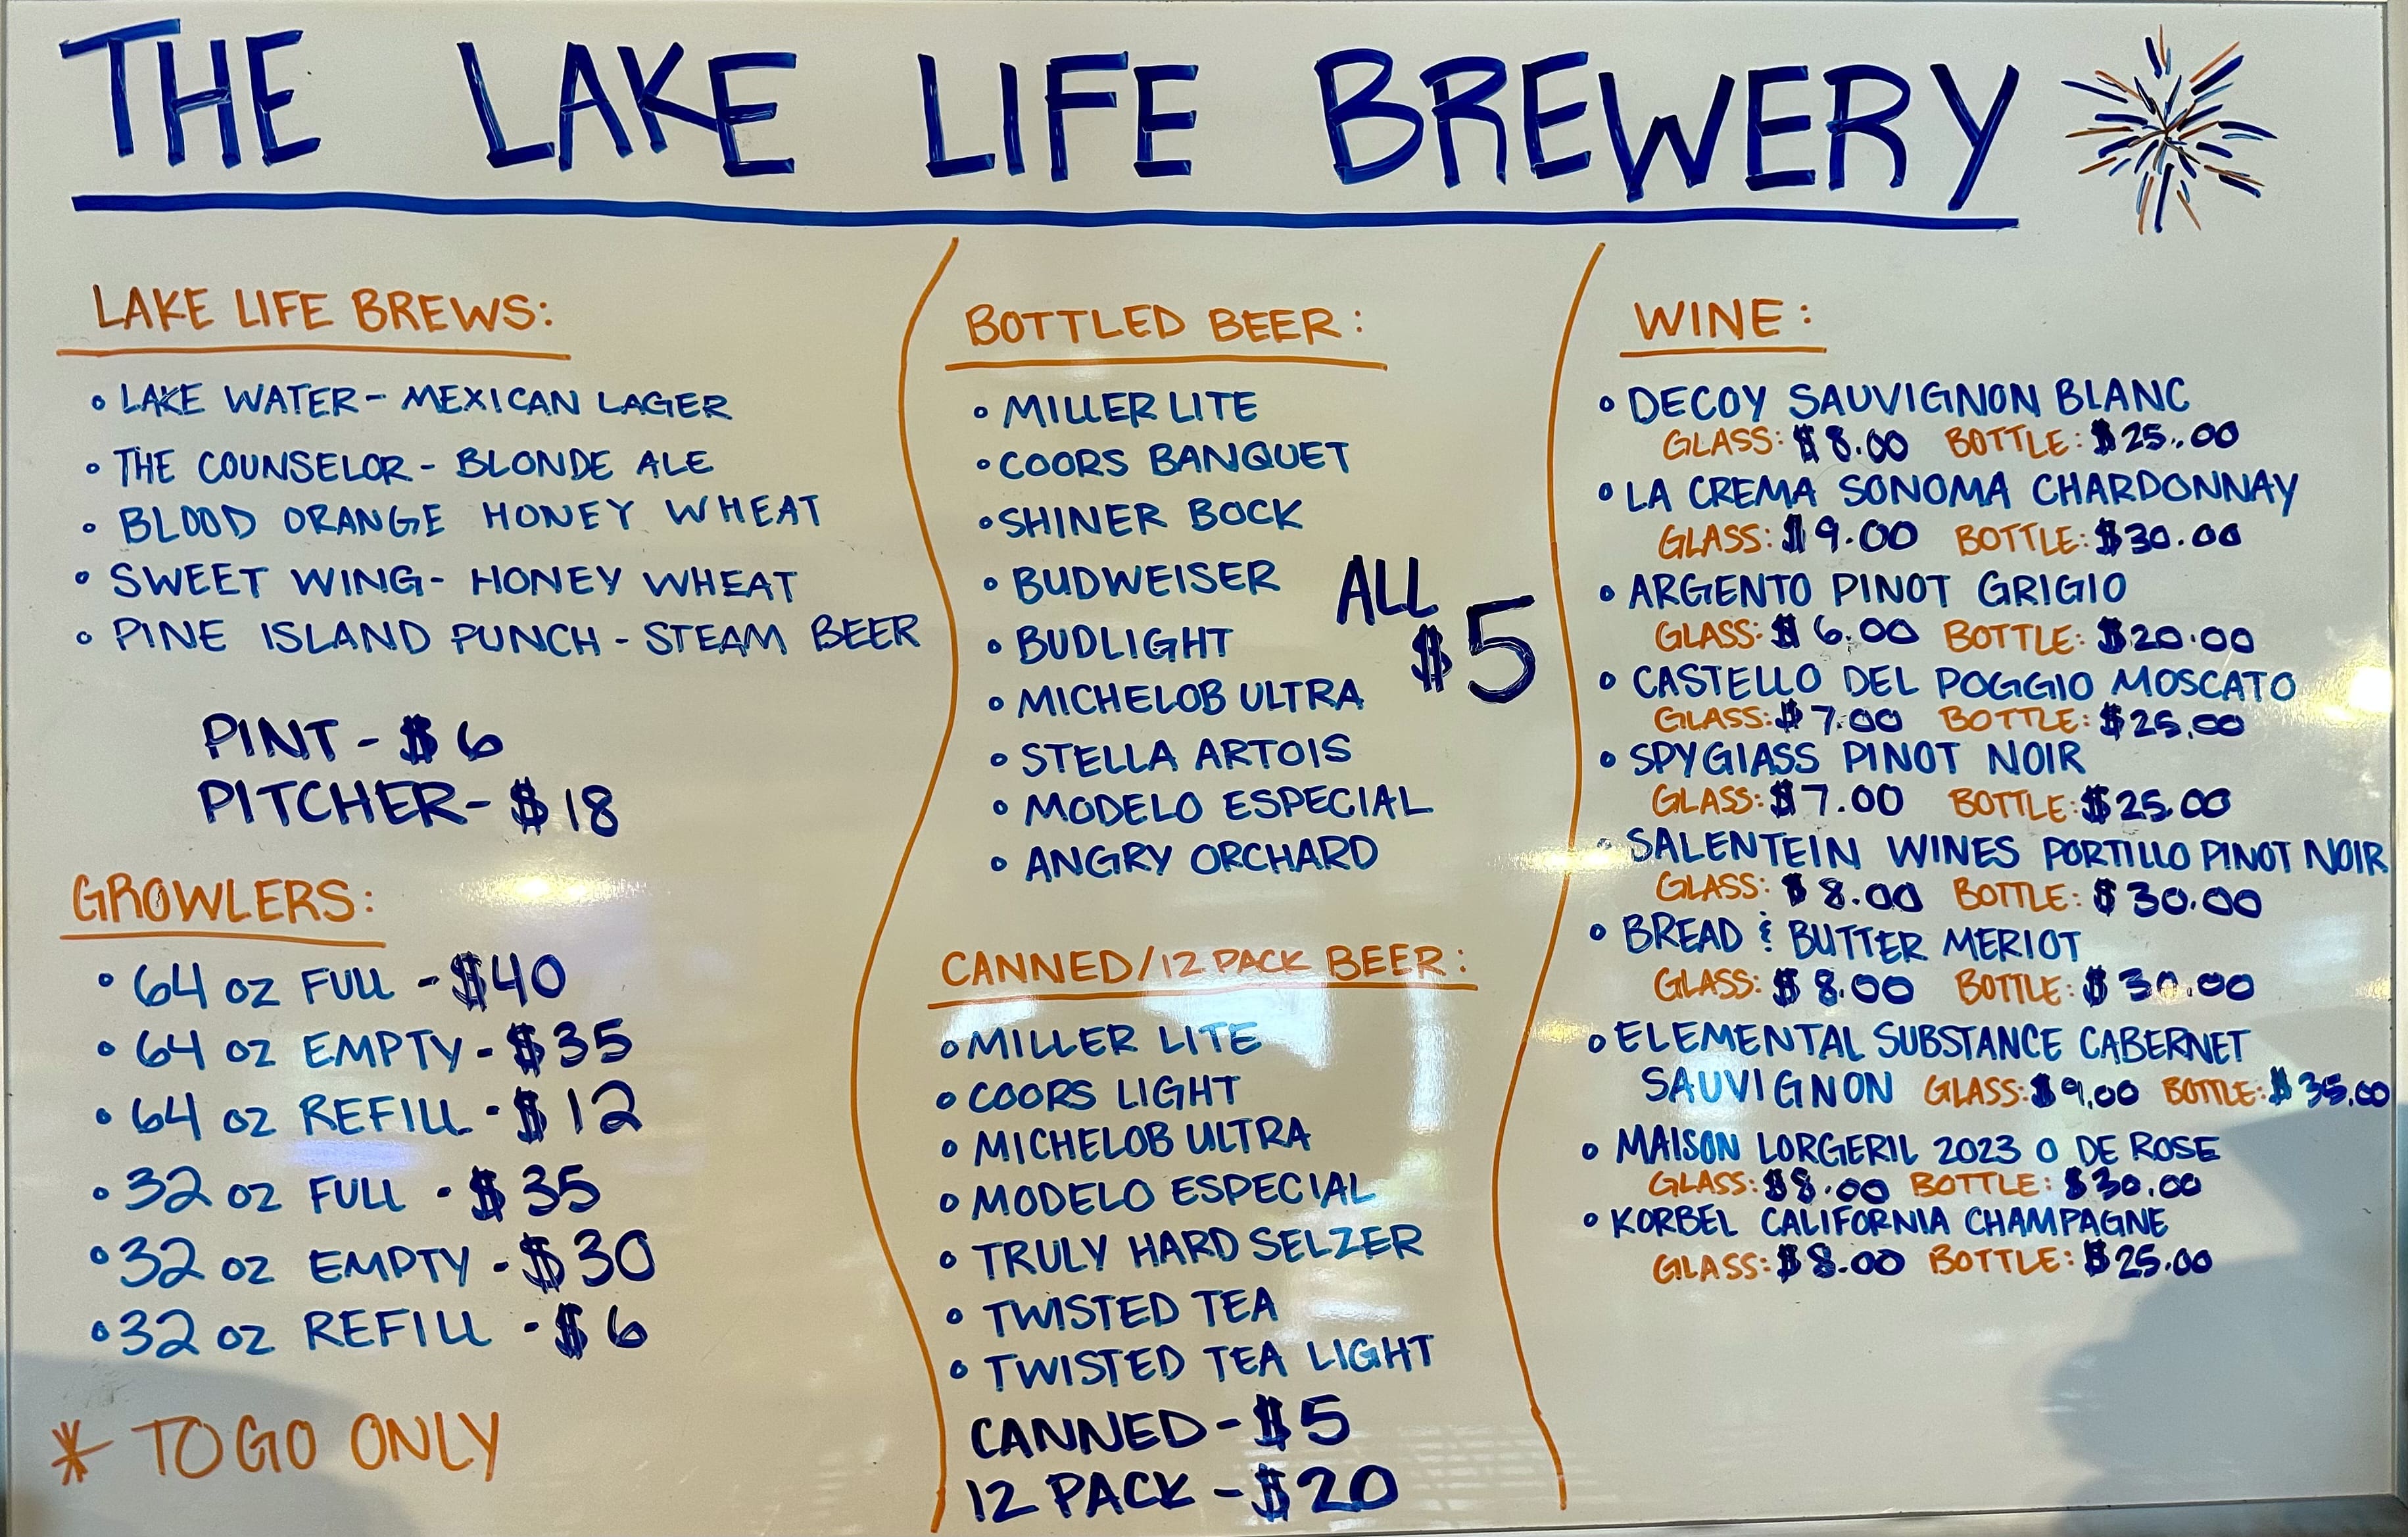 THE LAKE LIFE BREWERY
LAKE LIFE BREWS:
• LAKE WATER - MEXICAN LAGER
• THE COUNSELOR - BLONDE ALE
• BLOOD ORANGE HONEY WHEAT
• SWEET WING - HONEY WHEAT
• PINE ISLAND PUNCH - STEAM BEER
PINT - $6
PITCHER - $18
GROWLERS:
• 64 OZ FULL - $40
• 64 OZ EMPTY - $35
• 64 OZ REFILL - $12
• 32 OZ FULL - $35
• 32 OZ EMPTY - $30
• 32 OZ REFILL - $6
* TO GO ONLY
BOTTLED BEER:
• MILLER LITE
• COORS BANQUET
• SHINER BOCK
• BUDWEISER
• BUDLIGHT
• MICHELOB ULTRA
• STELLA ARTOIS
• MODELO ESPECIAL
• ANGRY ORCHARD
ALL
$5
CANNED/12 PACK BEER:
• MILLER LITE
• COORS LIGHT
• MICHELOB ULTRA
• MODELO ESPECIAL
• TRULY HARD SELZER
• TWISTED TEA
• TWISTED TEA LIGHT
CANNED - $5
12 PACK - $20
WINE:
• DECOY SAUVIGNON BLANC
GLASS: $8.00 BOTTLE: $25.00
• LA CREMA SONOMA CHARDONNAY
GLASS: $9.00 BOTTLE: $30.00
• ARGENTO PINOT GRIGIO
GLASS: $6.00 BOTTLE: $20.00
• CASTELLO DEL POGGIO MOSCATO
GLASS: $7.00 BOTTLE: $25.00
• SPYGLASS PINOT NOIR
GLASS: $7.00 BOTTLE: $25.00
• SALENTEIN WINES PORTILLO PINOT NOIR
GLASS: $8.00 BOTTLE: $30.00
• BREAD & BUTTER MERLOT
GLASS: $8.00 BOTTLE: $30.00
• ELEMENTAL SUBSTANCE CABERNET
SAUVIGNON GLASS: $9.00 BOTTLE: $35.00
• MAISON LORGERIL 2023 O DE ROSE
GLASS: $8.00 BOTTLE: $30.00
• KORBEL CALIFORNIA CHAMPAGNE
GLASS: $8.00 BOTTLE: $25.00